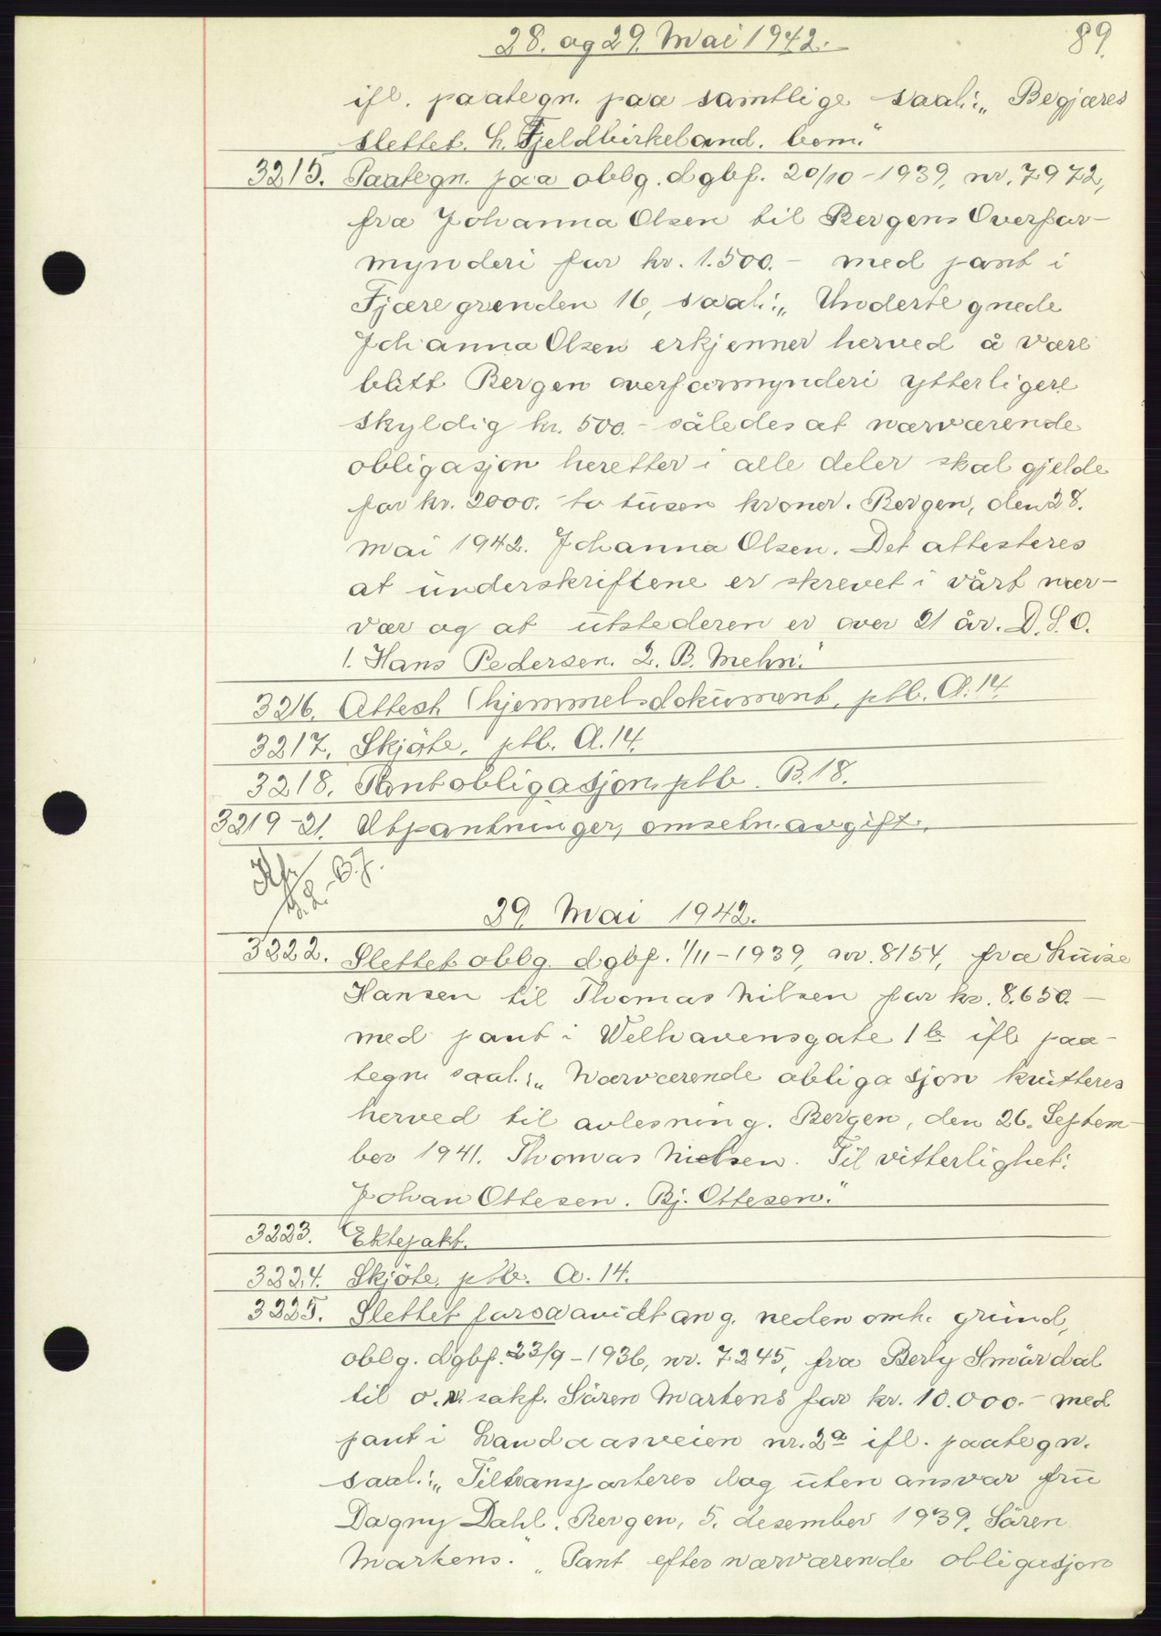 28. og 29. Mai 1942.
89.
ifl. paategn. paa samtlige saal.: „Begjæres
slettet. L. Fjeldbirkeland. bem."
3215. Paategn. paa oblg. dgbf. 20/10-1939, nr. 7972,
fra Johanna Olsen til Bergens Overfor-
mynderi for kr. 1.500.- med pant i
Fjæregrenden 16, saal.: „Undertegnede
Johanna Olsen erkjenner herved å være
blitt Bergen overformynderi ytterligere
skyldig kr. 500.- således at nærværende
obligasjon heretter i alle deler skal gjelde
for kr. 2000.- to tusen kroner. Bergen, den 28.
mai 1942. Johanna Olsen. Det attesteres
at underskriftene er skrevet i vårt nær-
vær og at utstederen er over 21 år. D.S.O.
1. Hans Pedersen. 2. B. Mehn."
3216. Attest (hjemmelsdokument, ptb. A.14
3217. Skjøte, ptb. A.14.
3218. Pantobligasjon, ptb. B.18.
3219-21. Utpantninger, omsetn.avgift.
29. Mai 1942.
3222. Slettet oblg. dgbf. 1/11-1939, nr. 8154, fra Luise
Hansen til Thomas Nilsen for kr. 8.650.-
med pant i Welhavensgate 1b ifl. paa-
tegn. saal.: „Nærværende obligasjon kvitteres
herved til avlesning. Bergen, den 26. Septem-
ber 1941. Thomas Nielsen. Til vitterlighet:
Johan Ottesen. Bj. Ottesen."
3223. Ektepakt.
3224. Skjøte, ptb. A.14.
3225. Slettet forsaavidt ang. nedenomh. grund,
oblg. dgbf. 23/9-1936, nr. 7245, fra Berly Smördal
til o.r.sakf. Sören Martens for kr. 10.000.- med
pant i Landaasveien nr. 2a ifl. paategn.
saal.: „Tiltransporteres dog uten ansvar fru
Dagny Dahl. Bergen, 5. desember 1939. Sören
Martens." „Pant efter nærværende obligasjon